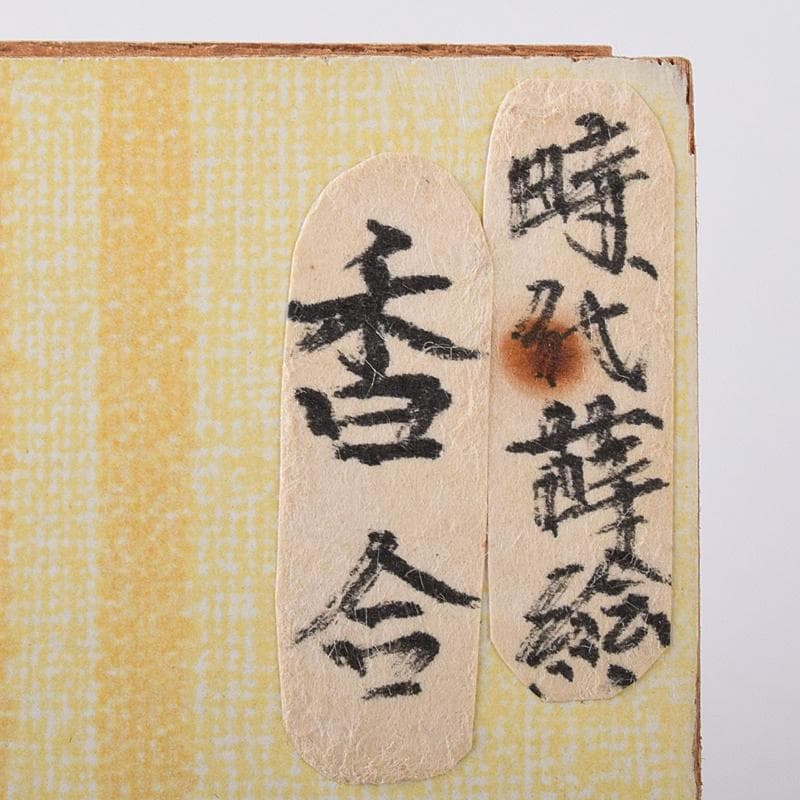 時代蒔絵
香合